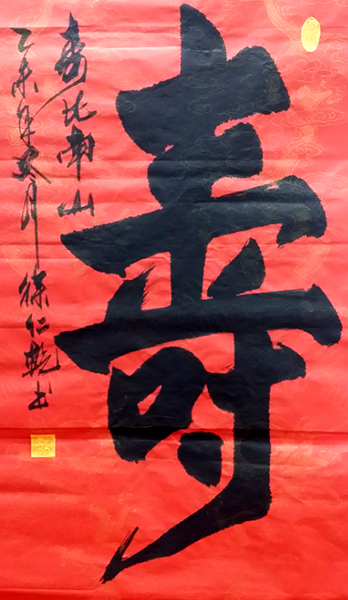 壽
寿比南山
乙未年冬月 徐仁乾书